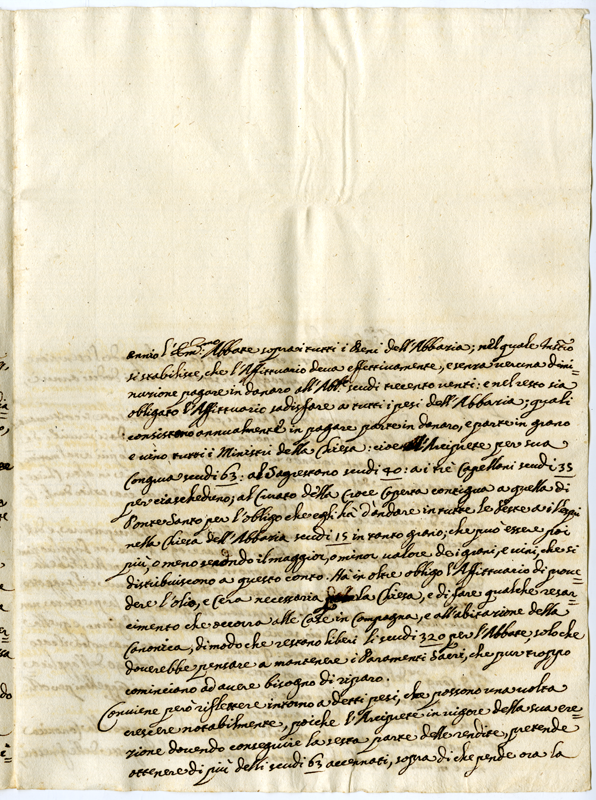 ennio l'Em.mo Abbate sopra i tutti i Beni dell'Abbazia; nel quale
si stabilisce, che l'Affittuario deva effettivamente, e senza veruna dimi=
nuzione pagare in danaro all'Abb.e scudi trecento venti: e nel resto sia
obligato l'Affittuario sadisfare a tutti i pesi dell'Abbazia; quali
consistono annualmente in pagare parte in danaro, e parte in grano
e vino tutti i Ministri della Chiesa: cioè all'Arciprete per sua
Congrua scudi 63: al Sagrestano scudi 40: a i trè Capellani scudi 35
per ciascheduno; al Curato della Croce Coperta contigua a quella di
Ponte Santo per l'obligo che egli hà d'andare in tutte le Feste a i Vespri
nella Chiesa dell'Abbazia scudi 15 in tanto grano; che può essere poi
più, o meno secondo il maggior, o minor valore de i grani, e vini, che si
distribuiscono a questo conto. Ha in oltre obligo l'Affittuario di prove=
dere l'olio, e Cera necessaria la Chiesa, e di fare qualche resar=
cimento che occorra alle Case in Campagna, e all'abitazione della
Canonica, di modo che restano liberi li scudi 320 per l'Abbate, solo che
doverebbe pensare a mantenere i Paramenti Sacri, che pur troppo
cominciano ad avere bisogno di riparo.
Conviene però riflettere intorno a detti pesi, che possono una volta
crescere notabilmente, poiche l'Arciprete in vigore della sua ere=
zione dovendo conseguire la sesta parte delle rendite, pretende
ottenere di più delli scudi 63 accennati, sopra di che pende ora la